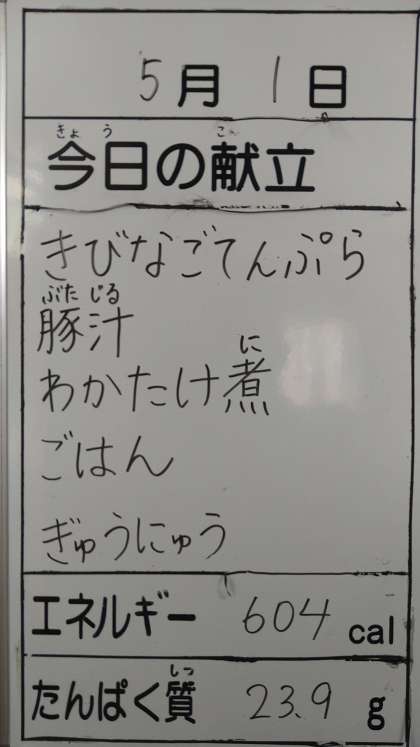 5月1日
きょう こん
今日の献立
きびなごてんぷら
ぶた じる
豚汁
に
わかたけ煮
ごはん
ぎゅうにゅう
エネルギー 604 cal
しつ
たんぱく質 23.9 g